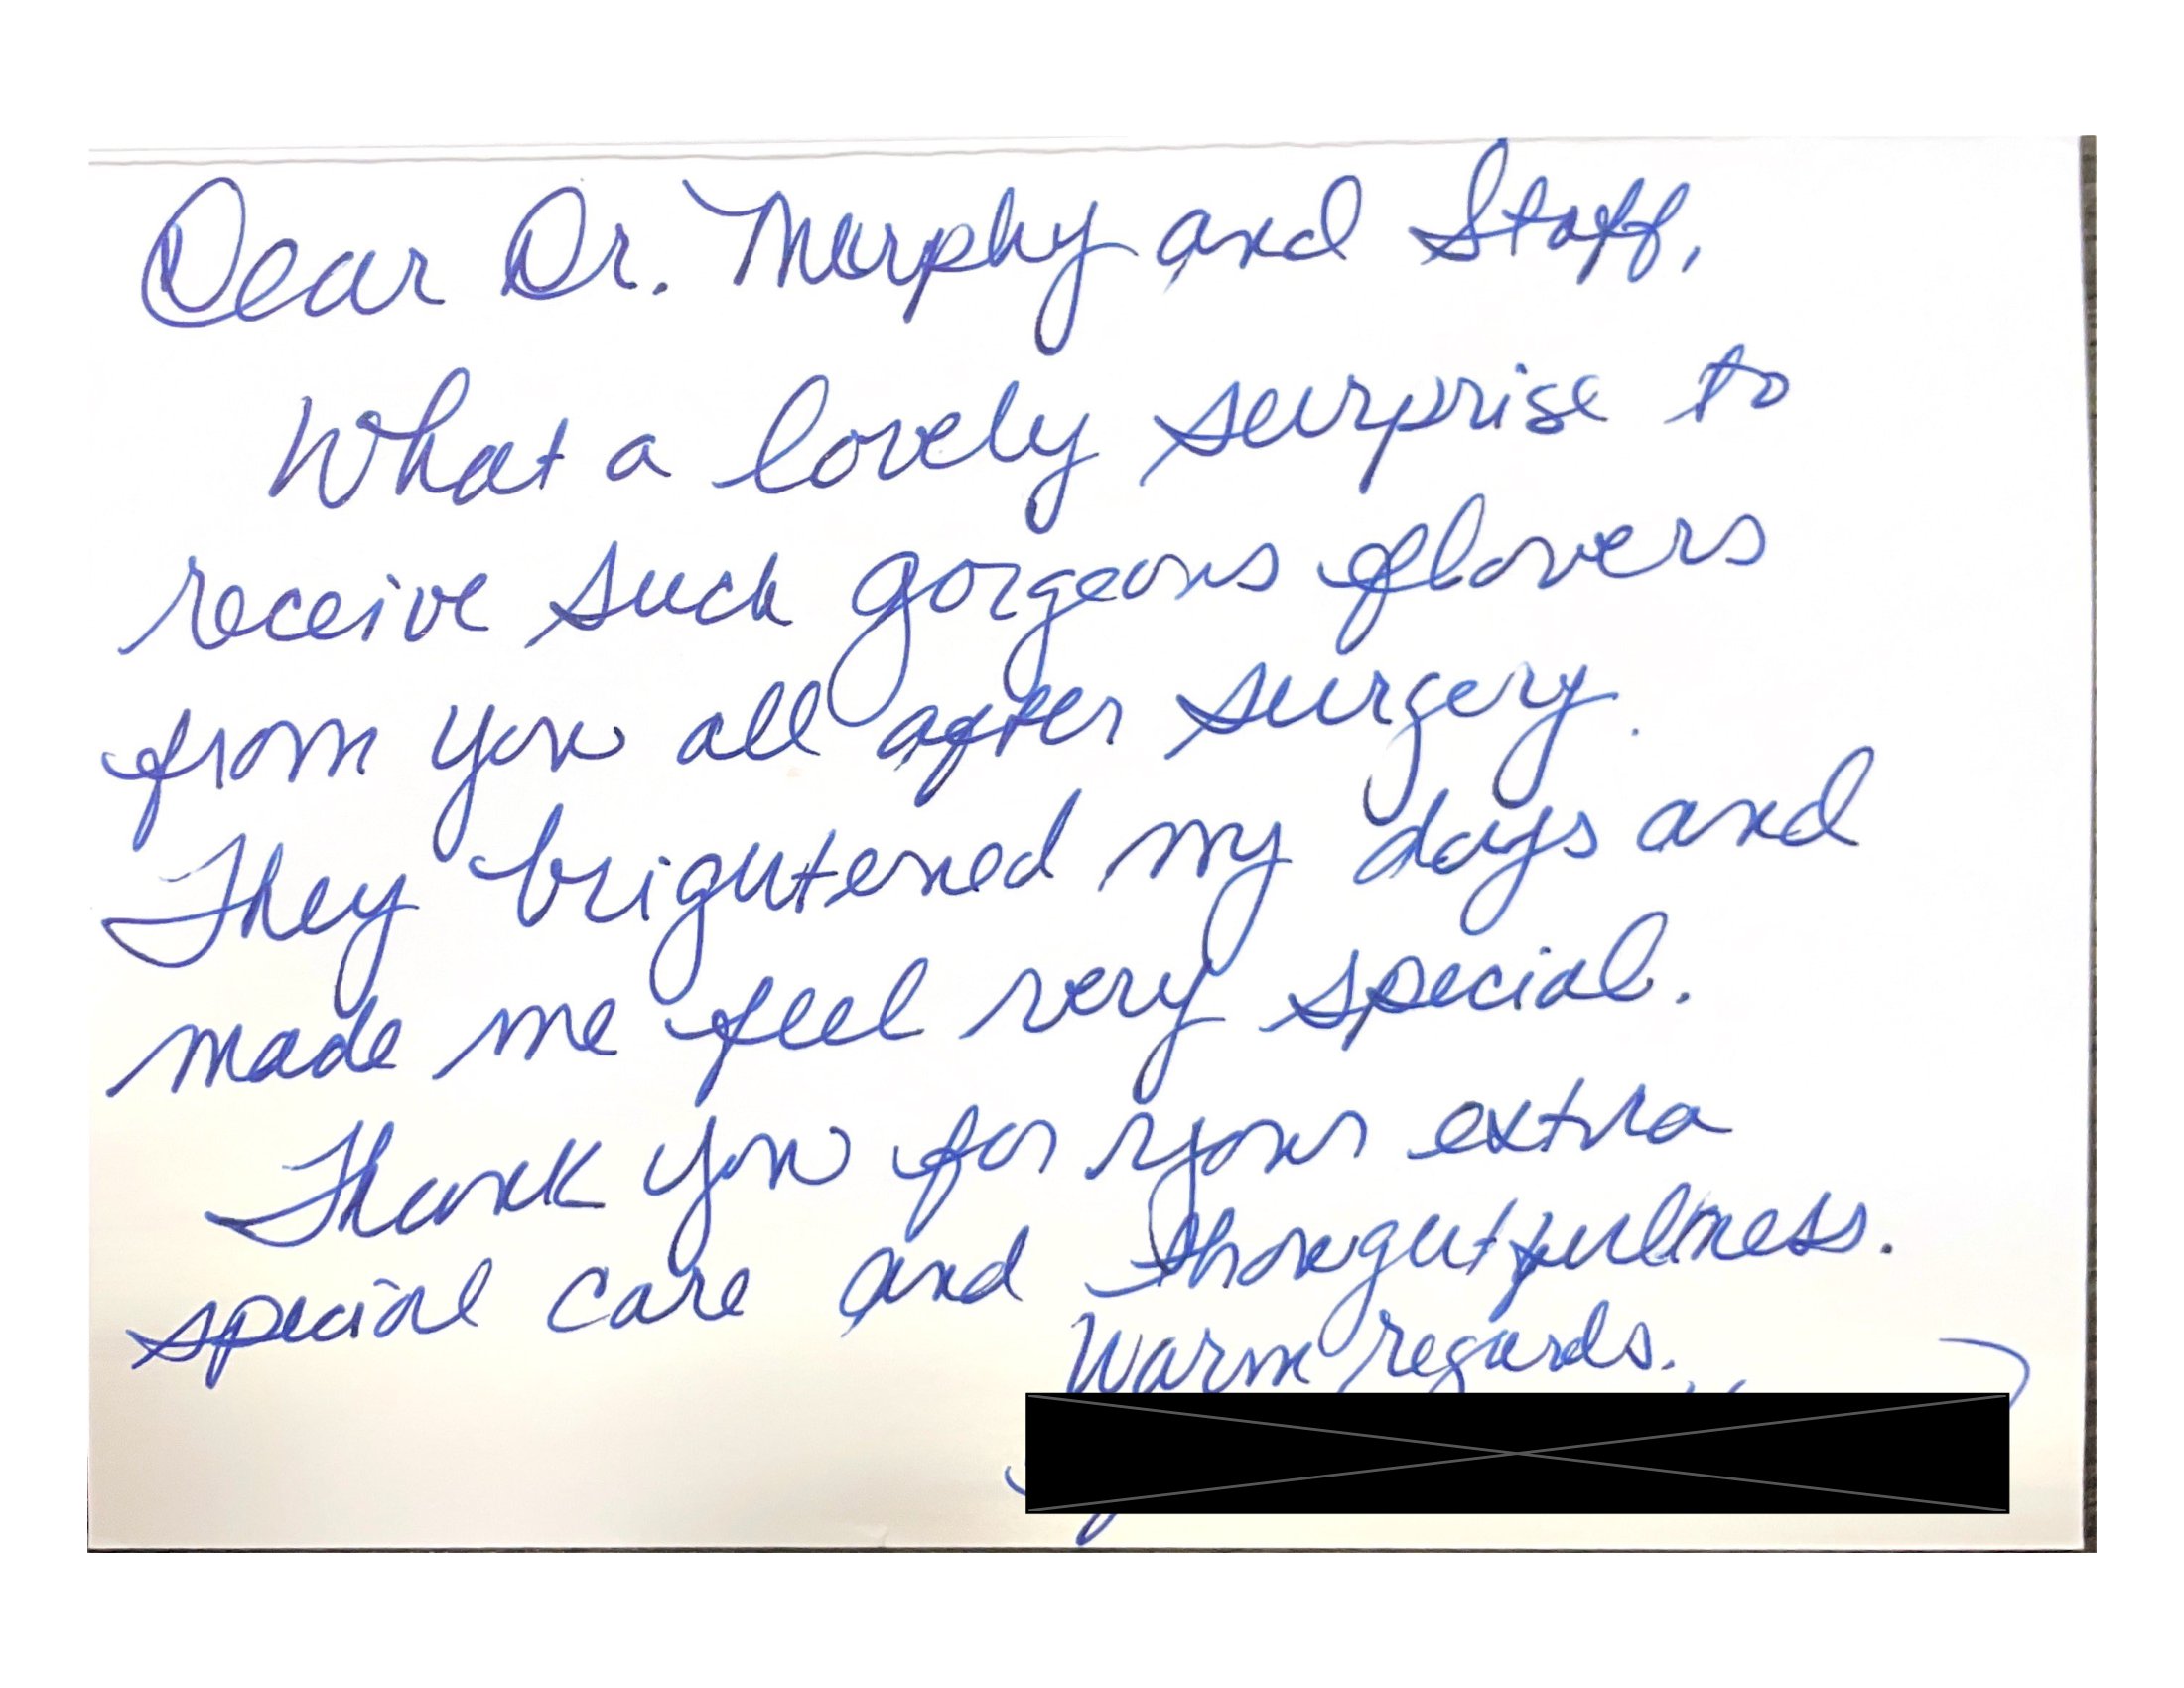 Dear Dr. Murphy and Staff,
What a lovely surprise to
receive such gorgeous flowers
from you all after surgery.
They brightened my days and
made me feel very special.
Thank you for your extra
special care and thoughtfulness.
Warm regards,